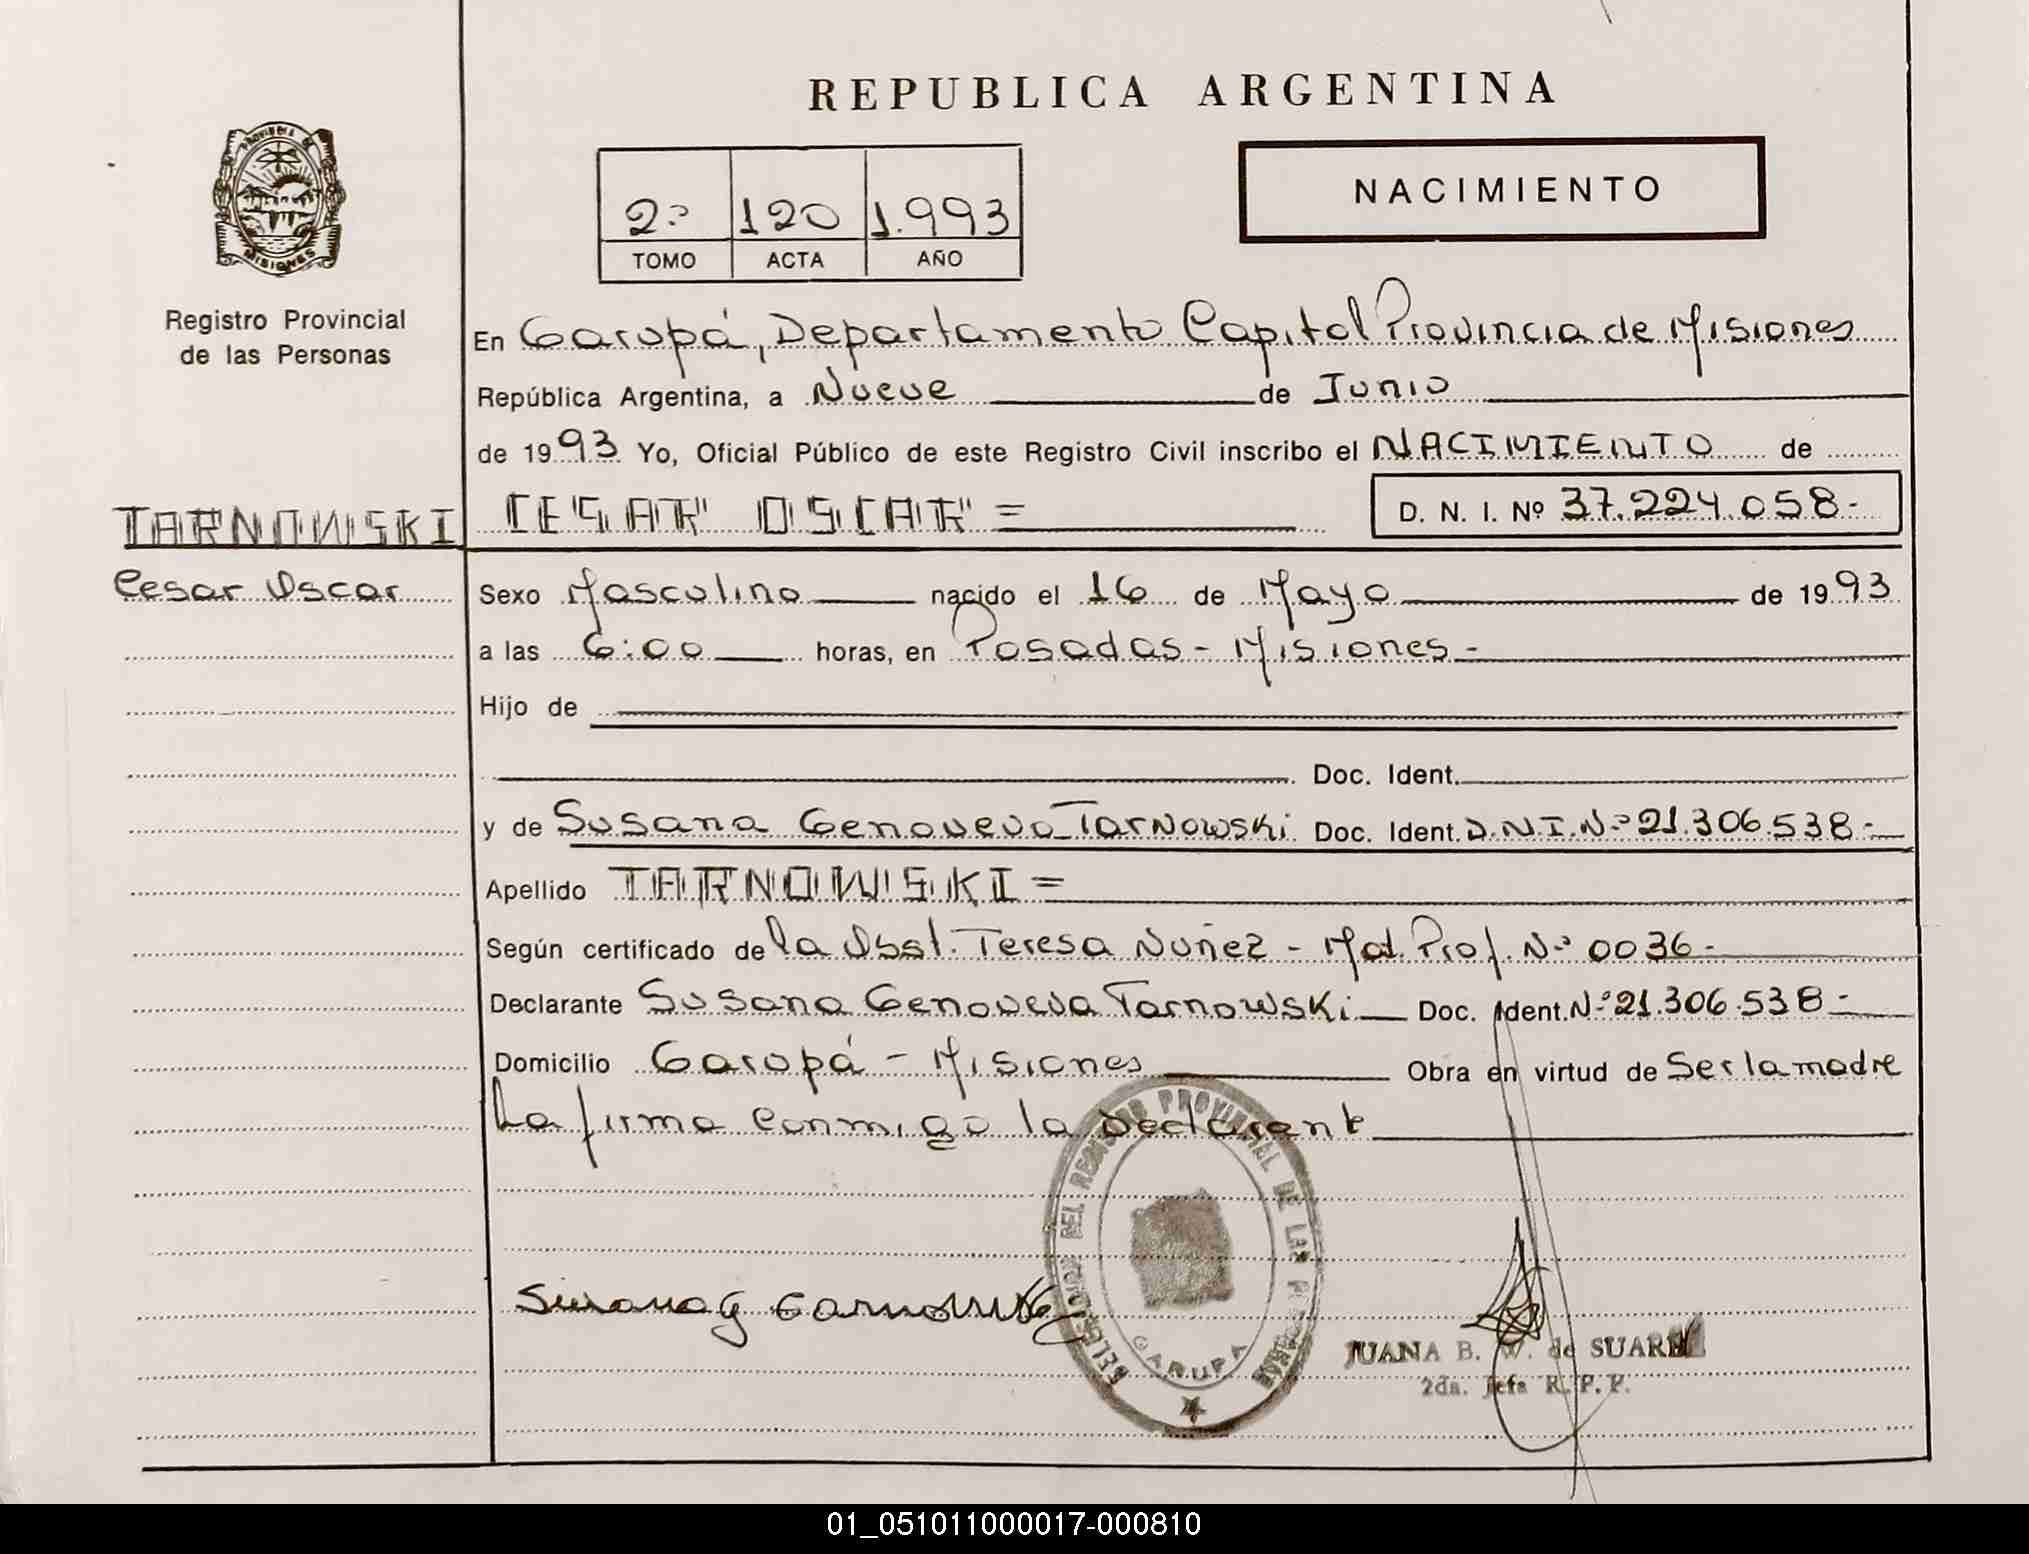 REPUBLICA ARGENTINA
PROVINCIA DE
MISIONES
Registro Provincial
de las Personas
2º 120 1.993
TOMO ACTA AÑO
NACIMIENTO
En Garupá, Departamento Capital Provincia de Misiones
República Argentina, a Nueve de Junio
de 1993 Yo, Oficial Público de este Registro Civil inscribo el NACIMIENTO de
TARNOWSKI CESAR OSCAR = D. N. I. Nº 37.224.058-
Cesar Oscar Sexo Masculino nacido el 16 de Mayo de 1993
a las 6:00 horas, en Posadas - Misiones -
Hijo de
Doc. Ident.
y de Susana Genoveva Tarnowski Doc. Ident. D.N.I.Nº 21.306.538-
Apellido TARNOWSKI =
Según certificado de la Obst. Teresa Nuñez - Mat. Prof. Nº 0036-
Declarante Susana Genoveva Tarnowski Doc. Ident. Nº 21.306.538-
Domicilio Garupá - Misiones Obra en virtud de Ser la madre
La firma conmigo la Declarante
DELEGACION DEL REGISTRO PROVINCIAL DE LAS PERSONAS
GARUPA
Susana G Tarnowski
JUANA B. W. de SUAREZ
2da. Jefa R. P. P.
01_051011000017-000810